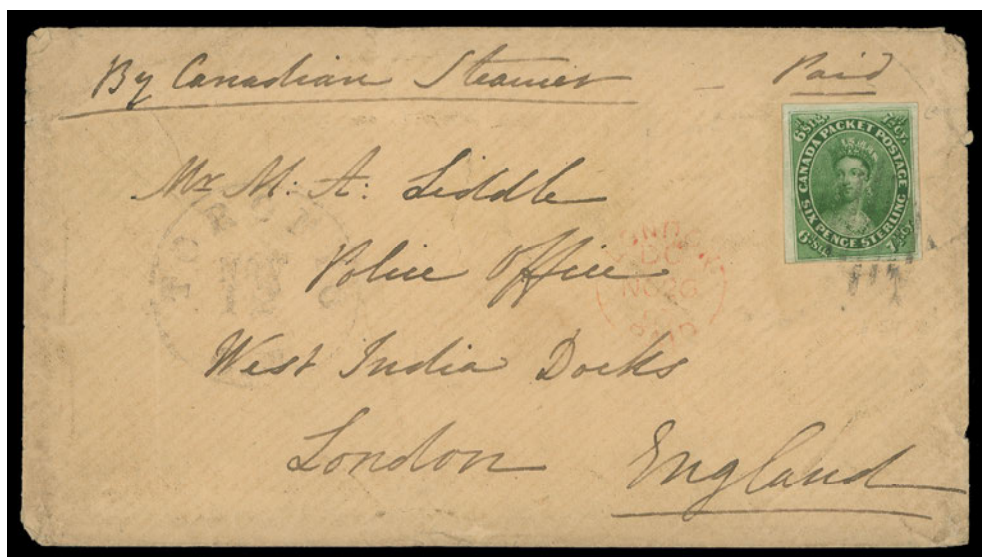 By Canadian Steamer - Paid
6d Stg. 7½d Cy.
CANADA PACKET POSTAGE
SIX PENCE STERLING
6d Stg. 7½d Cy.
Mr M: A: Liddle
Police Office
West India Docks
London England
NO 26
PAID